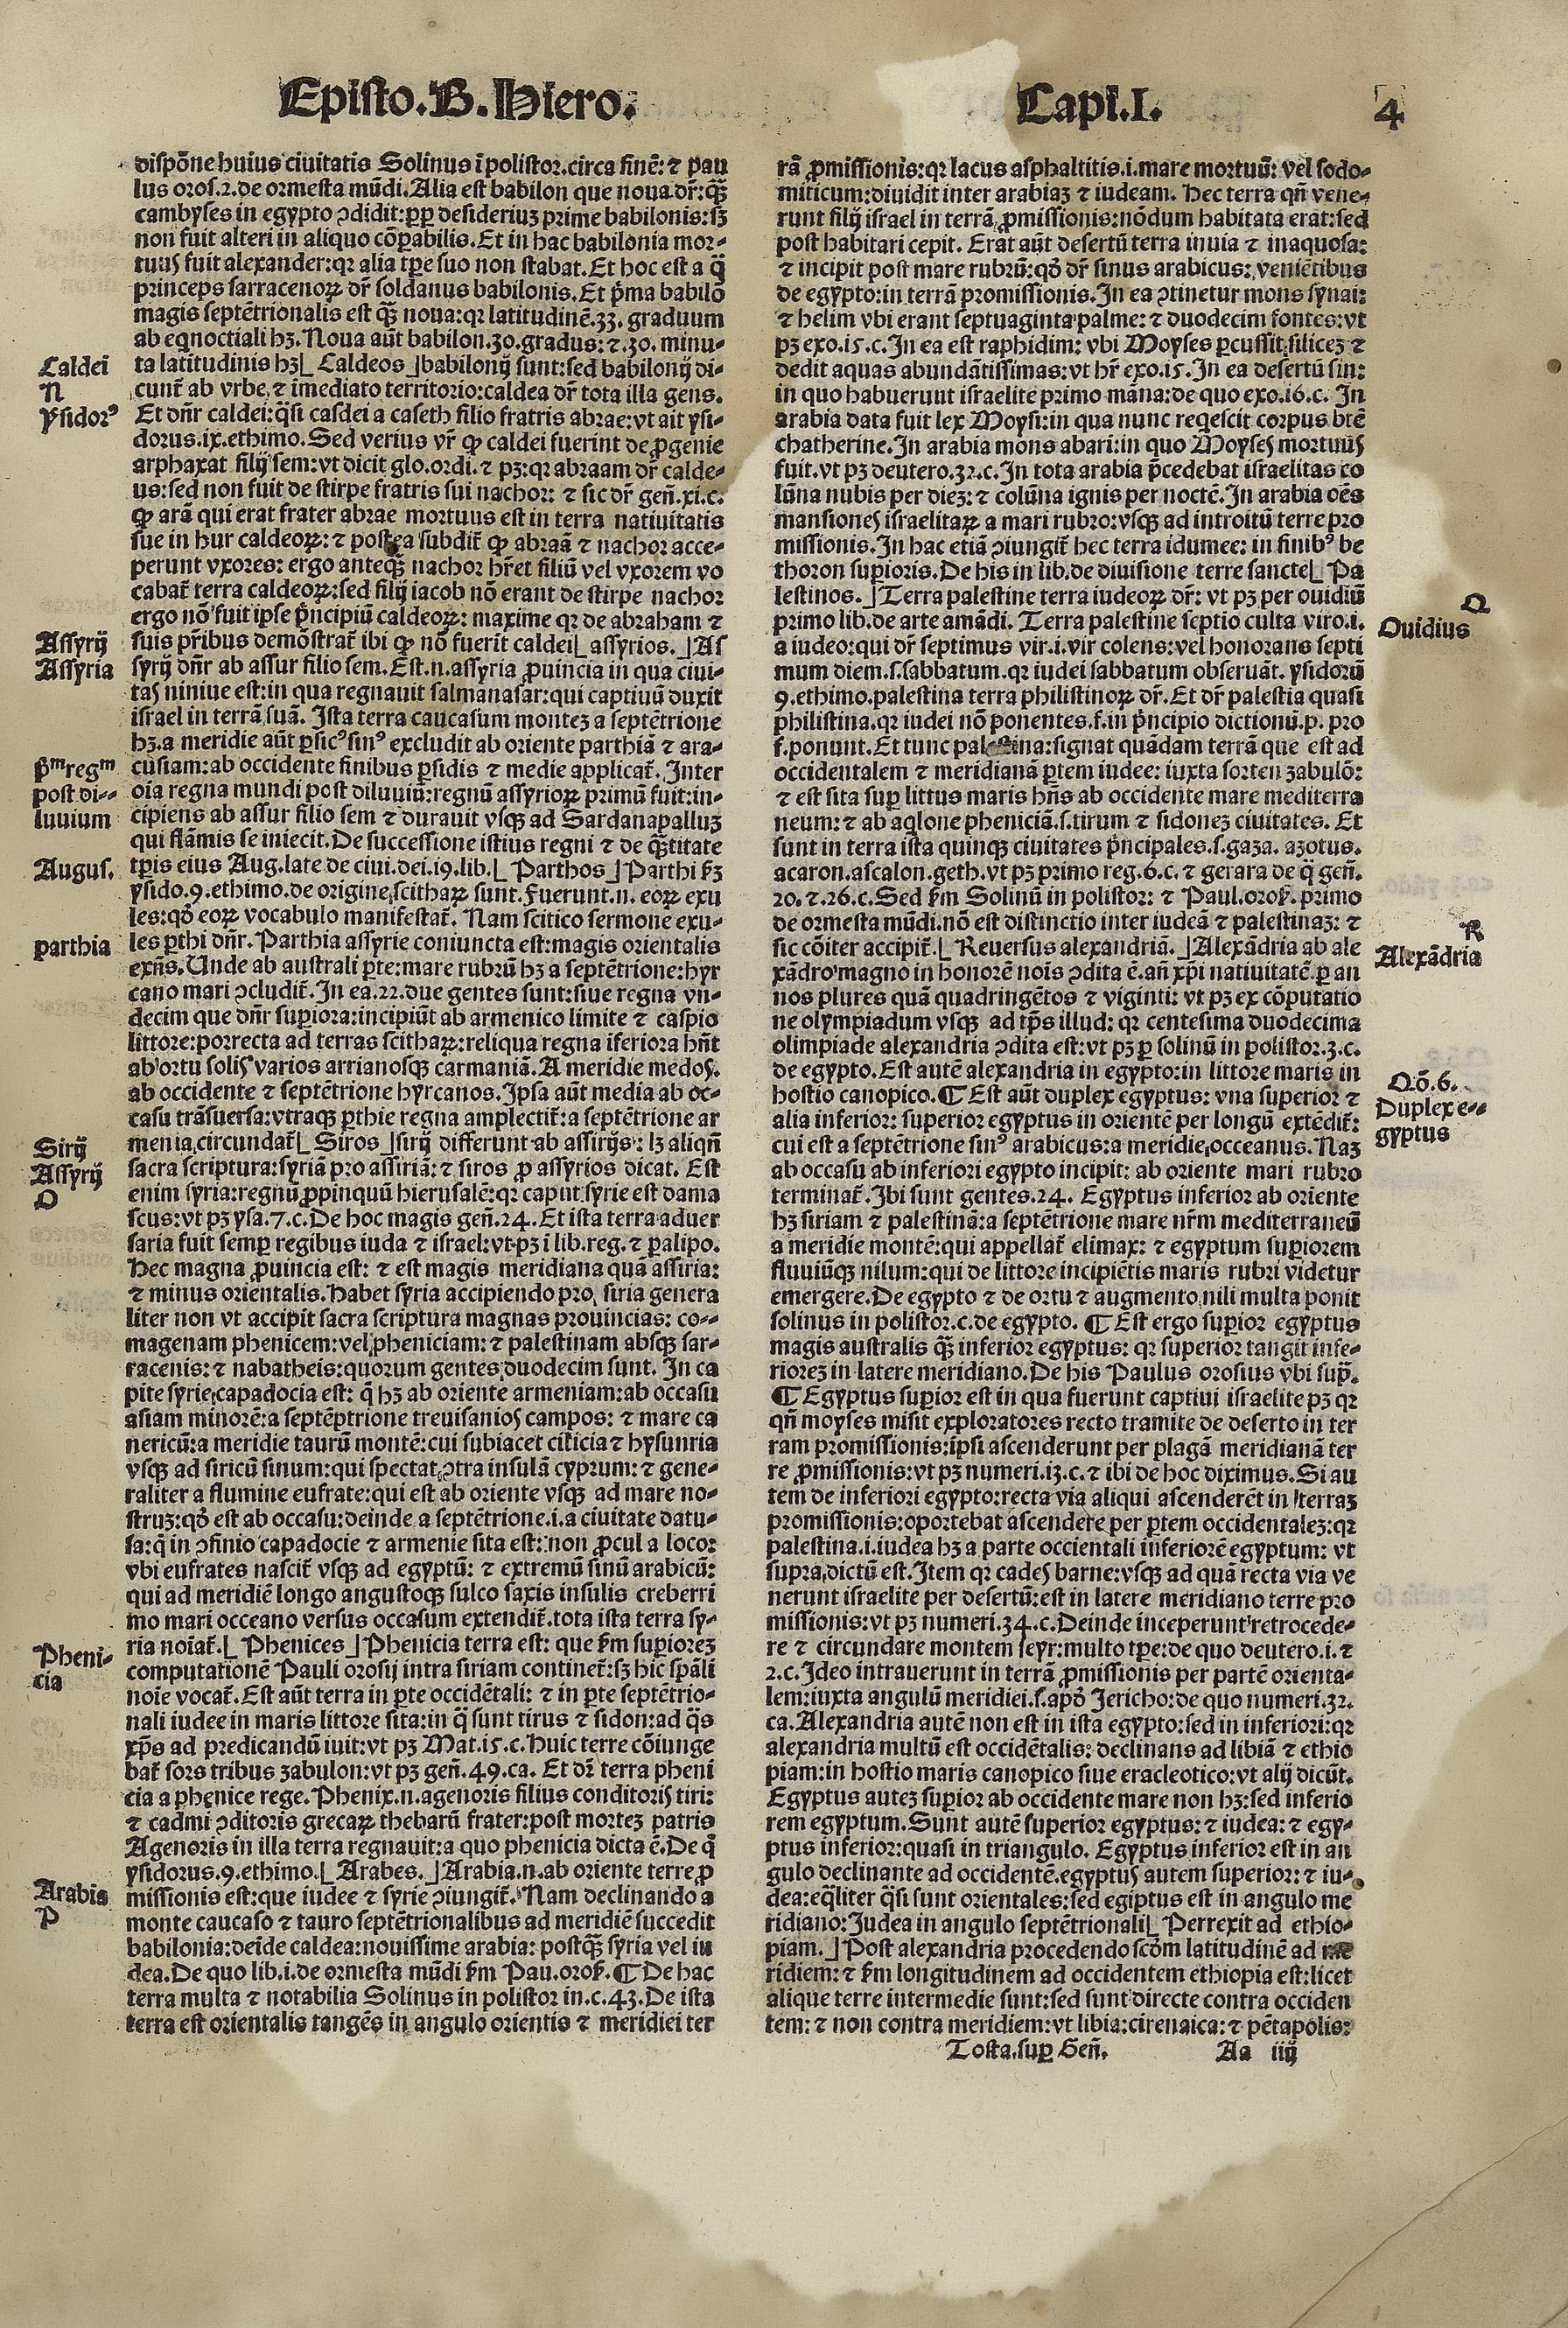 Episto.B.Hiero.
Capi.I.
4
dispōne huius ciuitatis Solinus ī polistor.circa finē: ⁊ pau
lus oros.2.de ormesta mūdi.Alia est babilon que noua dr̄:qꝫ̄
cambyses in egypto ↄdidit:ꝓp desideriuꝫ prime babilonis:sꝫ
non fuit alteri in aliquo cōꝑabilis.Et in hac babilonia mor-
tuus fuit alexander:qꝛ alia tꝑe suo non stabat.Et hoc est a q̄
princeps sarracenoꝝ dr̄ soldanus babilonis.Et p̄ma babilō
magis septētrionalis est qꝫ̄ noua:qꝛ latitudinē.33. graduum
ab eqnoctiali hꝫ.Noua aūt babilon.30.gradus:⁊.30. minu-
ta latitudinis hꝫ⌊ Caldeos ⌋babilonij sunt:sed babilonij di-
cunt̄ ab vrbe,⁊ īmediato territorio:caldea dr̄ tota illa gens.
Et dn̄r caldei:q̄si casdei a caseth filio fratris abrae:vt ait ysi-
dorus.ix.ethimo.Sed verius vr̄ ꝙ caldei fuerint de ꝓgenie
arphaxat filij sem:vt dicit glo.ordi.⁊ pꝫ:qꝛ abraam dr̄ calde-
us:sed non fuit de stirpe fratris sui nachor: ⁊ sic dr̄ gen̄.xi.c.
ꝙ arā qui erat frater abrae mortuus est in terra natiuitatis
sue in hur caldeoꝝ:⁊ postea subdit̄ ꝙ abraā ⁊ nachor acce-
perunt vxores: ergo anteqꝫ̄ nachor hr̄et filiū vel vxorem vo
cabat̄ terra caldeoꝝ:sed filij iacob nō erant de stirpe nachor
ergo nō fuit ipse p̄ncipiū caldeoꝝ: maxime qꝛ de abraham ⁊
suis pr̄ibus demōstrat̄ ibi ꝙ nō fuerit caldei⌊ assyrios. ⌋As
syrij dn̄r ab assur filio sem.Est.n.assyria ꝓuincia in qua ciui-
tas niniue est:in qua regnauit salmanasar:qui captiuū duxit
israel in terrā suā. Ista terra caucasum monteꝫ a septētrione
hꝫ.a meridie aūt ꝑsicꝰ sinꝰ excludit ab oriente parthiā ⁊ ara-
cusiam:ab occidente finibus ꝑsidis ⁊ medie applicat̄. Inter
oīa regna mundi post diluuiū:regnū assyrioꝝ primū fuit:in-
cipiens ab assur filio sem ⁊ durauit vsqꝫ ad Sardanapalluꝫ
qui flāmis se iniecit.De successione istius regni ⁊ de qꝫ̄titate
tꝑis eius Aug.late de ciui.dei.19.lib.⌊ Parthos ⌋Parthi ẜꝫ
ysido.9.ethimo.de origine scithaꝝ sunt.Fuerunt.n. eoꝝ exu
les:qd̓ eoꝝ vocabulo manifestat̄. Nam scitico sermone exu-
les ꝑthi dn̄r.Parthia assyrie coniuncta est:magis orientalis
exn̄s.Unde ab australi ꝑte:mare rubrū hꝫ a septētrione:hyr
cano mari ↄcludit̄.In ea.22.due gentes sunt:siue regna vn-
decim que dn̄r suꝑiora:incipiūt ab armenico limite ⁊ caspio
littore:porrecta ad terras scithaꝝ:reliqua regna īferiora hn̄t
ab ortu solis varios arrianosqꝫ carmaniā.A meridie medos.
ab occidente ⁊ septētrione hyrcanos.Ipsa aūt media ab oc-
casu trāsuersa:vtraqꝫ ꝑthie regna amplectit̄:a septētrione ar
menia,circundat̄⌊ Siros ⌋sirij differunt ab assirijs: lꝫ aliqn̄
sacra scriptura:syriā pro assiriā:⁊ siros ꝓ assyrios dicat. Est
enim syria:regnū ꝓpinquū hierusalē:qꝛ caput syrie est dama
scus:vt pꝫ ysa.7.c.De hoc magis gen̄.24.Et ista terra aduer
saria fuit semꝑ regibus iuda ⁊ israel:vt pꝫ ī lib.reg.⁊ ꝑalipo.
Hec magna ꝓuincia est: ⁊ est magis meridiana quā assiria:
⁊ minus orientalis.Habet syria accipiendo pro siria genera
liter non vt accipit sacra scriptura magnas prouincias: co-
magenam phenicem:vel pheniciam:⁊ palestinam absqꝫ sar-
racenis:⁊ nabatheis:quorum gentes duodecim sunt. In ca
pite syrie,capadocia est: q̄ hꝫ ab oriente armeniam:ab occasu
asiam minorē:a septēptrione treuisanios campos: ⁊ mare ca
nericū:a meridie taurū montē:cui subiacet cilicia ⁊ hysunria
vsqꝫ ad siricū sinum:qui spectat ↄtra insulā cyprum: ⁊ gene-
raliter a flumine eufrate:qui est ab oriente vsqꝫ ad mare no-
struꝫ:qd̓ est ab occasu:deinde a septētrione.i.a ciuitate datu-
sa:q̄ in ↄfinio capadocie ⁊ armenie sita est: non ꝓcul a loco:
vbi eufrates nascit̄ vsqꝫ ad egyptū: ⁊ extremū sinū arabicū:
qui ad meridiē longo angustoqꝫ sulco saxis insulis creberri
mo mari occeano versus occasum extendit̄.tota ista terra sy-
ria noīat̄.⌊ Phenices ⌋Phenicia terra est: que ẜm suꝑioreꝫ
computationē Pauli orosij intra siriam continet̄:sꝫ hic sꝑāli
noīe vocat̄.Est aūt terra in ꝑte occidētali: ⁊ in ꝑte septētrio-
nali iudee in maris littore sita:in q̄ sunt tirus ⁊ sidon:ad q̄s
xp̄s ad predicandū iuit:vt pꝫ Mat.15.c.Huic terre cōiunge
bat̄ sors tribus zabulon:vt pꝫ gen̄.49.ca. Et dr̄ terra pheni
cia a phenice rege.Phenix.n.agenoris filius conditoris tiri:
⁊ cadmi ↄditoris grecaꝝ thebarū frater:post morteꝫ patris
Agenoris in illa terra regnauit:a quo phenicia dicta ē.De q̄
ysidorus.9.ethimo.⌊ Arabes. ⌋Arabia.n.ab oriente terre ꝓ
missionis est:que iudee ⁊ syrie ↄiungit̄. Nam declinando a
monte caucaso ⁊ tauro septētrionalibus ad meridiē succedit
babilonia:deīde caldea:nouissime arabia: postqꝫ̄ syria vel iu
dea.De quo lib.i.de ormesta mūdi ẜm Pau.oroẜ.¶ De hac
terra multa ⁊ notabilia Solinus in polistor in.c.43.De ista
terra est orientalis tangēs in angulo orientis ⁊ meridiei ter
Caldeī
N
Ysidorꝰ
Assyrij
Assyria
p̄ᵐregᵐ
post di-
luuium
Augus.
parthia
Sirij
Assyrij
O
Pheni-
cia
Arabia
P
rā ꝓmissionis:qꝛ lacus asphaltitis.i.mare mortuū: vel sodo-
miticum:diuidit inter arabiaꝫ ⁊ iudeam. Hec terra qn̄ vene-
runt filij israel in terrā ꝓmissionis:nōdum habitata erat:sed
post habitari cepit. Erat aūt desertū terra inuia ⁊ inaquosa:
⁊ incipit post mare rubrū:qd̓ dr̄ sinus arabicus: veniētibus
de egypto:in terrā promissionis.In ea ↄtinetur mons synai:
⁊ helim vbi erant septuaginta palme: ⁊ duodecim fontes:vt
pꝫ exo.15.c.In ea est raphidim: vbi Moyses ꝑcussit siliceꝫ ⁊
dedit aquas abundātissimas:vt hr̄ exo.15.In ea desertū sin:
in quo habuerunt israelite primo māna:de quo exo.16.c. In
arabia data fuit lex Moysi:in qua nunc reqescit corpus btē
chatherine.In arabia mons abari:in quo Moyses mortuus
fuit.vt pꝫ deutero.32.c.In tota arabia p̄cedebat israelitas co
lūna nubis per dieꝫ:⁊ colūna ignis per noctē.In arabia oēs
mansiones israelitaꝝ a mari rubro:vsqꝫ ad introitū terre pro
missionis.In hac etiā ↄiungit̄ hec terra idumee: in finibꝰ be
thoron suꝑioris.De his in lib.de diuisione terre sancte⌊ Pa
lestinos. ⌋Terra palestine terra iudeoꝝ dr̄: vt pꝫ per ouidiū
primo lib.de arte amādi. Terra palestine septio culta viro.i.
a iudeo:qui dr̄ septimus vir.i.vir colens:vel honorans septi
mum diem.s.sabbatum.qꝛ iudei sabbatum obseruāt. ysidorū
9.ethimo.palestina terra philistinoꝝ dr̄.Et dr̄ palestia quasi
philistina.qꝛ iudei nō ponentes.f.in p̄ncipio dictionū.p. pro
f.ponunt.Et tunc palestina:signat quādam terrā que est ad
occidentalem ⁊ meridianā ꝑtem iudee: iuxta sorten zabulō:
⁊ est sita suꝑ littus maris hn̄s ab occidente mare mediterra
neum:⁊ ab aqlone pheniciā.s.tirum ⁊ sidoneꝫ ciuitates. Et
sunt in terra ista quinqꝫ ciuitates p̄ncipales.s.gaza. azotus.
acaron.ascalon.geth.vt pꝫ primo reg.6.c.⁊ gerara de q̄ gen̄.
20.⁊.26.c.Sed ẜm Solinū in polistor: ⁊ Paul.oroẜ.primo
de ormesta mūdi.nō est distinctio inter iudeā ⁊ palestinaꝫ: ⁊
sic cōiter accipit̄.⌊ Reuersus alexandriā. ⌋Alexādria ab ale
xādro magno in honorē noīs ↄdita ē.an̄ xp̄i natiuitatē ꝑ an
nos plures quā quadringētos ⁊ viginti: vt pꝫ ex cōputatio
ne olympiadum vsqꝫ ad tp̄s illud: qꝛ centesima duodecima
olimpiade alexandria ↄdita est:vt pꝫ ꝑ solinū in polistor.3.c.
de egypto.Est autē alexandria in egypto:in littore maris in
hostio canopico.¶ Est aūt duplex egyptus: vna superior ⁊
alia inferior: superior egyptus in orientē per longū extēdit̄:
cui est a septētrione sinꝰ arabicus:a meridie,occeanus. Naꝫ
ab occasu ab inferiori egypto incipit: ab oriente mari rubro
terminat̄.Ibi sunt gentes.24. Egyptus inferior ab oriente
hꝫ siriam ⁊ palestinā:a septētrione mare nr̄m mediterraneū
a meridie montē:qui appellat̄ elimax: ⁊ egyptum suꝑiorem
fluuiūqꝫ nilum:qui de littore incipiētis maris rubri videtur
emergere.De egypto ⁊ de ortu ⁊ augmento nili multa ponit
solinus in polistor.c.de egypto. ¶ Est ergo suꝑior egyptus
magis australis qꝫ̄ inferior egyptus: qꝛ superior tangit infe-
rioreꝫ in latere meridiano. De his Paulus orosius vbi sup̄.
¶ Egyptus suꝑior est in qua fuerunt captiui israelite pꝫ qꝛ
qn̄ moyses misit exploratores recto tramite de deserto in ter
ram promissionis:ipsi ascenderunt per plagā meridianā ter
re ꝓmissionis:vt pꝫ numeri.13.c.⁊ ibi de hoc diximus.Si au
tem de inferiori egypto:recta via aliqui ascenderēt in terraꝫ
promissionis:oportebat ascendere per ꝑtem occidentaleꝫ:qꝛ
palestina.i.iudea hꝫ a parte occientali inferiorē egyptum: vt
supra dictū est.Item qꝛ cades barne:vsqꝫ ad quā recta via ve
nerunt israelite per desertū:est in latere meridiano terre pro
missionis:vt pꝫ numeri.34.c.Deinde inceperunt retrocede-
re ⁊ circundare montem seyr:multo tꝑe:de quo deutero.i.⁊
2.c.Ideo intrauerunt in terrā ꝓmissionis per partē orienta-
lem:iuxta angulū meridiei.s.apd̓ Jericho:de quo numeri.32.
ca.Alexandria autē non est in ista egypto:sed in inferiori:qꝛ
alexandria multū est occidētalis: declinans ad libiā ⁊ ethio
piam:in hostio maris canopico siue eracleotico:vt alij dicūt.
Egyptus auteꝫ suꝑior ab occidente mare non hꝫ:sed inferio
rem egyptum.Sunt autē superior egyptus:⁊ iudea: ⁊ egy-
ptus inferior:quasi in triangulo. Egyptus inferior est in an
gulo declinante ad occidentē.egyptus autem superior: ⁊ iu-
dea:eq̄liter q̄si sunt orientales:sed egiptus est in angulo me
ridiano:Judea in angulo septētrionali⌊ Perrexit ad ethio-
piam. ⌋Post alexandria procedendo scd̓m latitudinē ad me
ridiem: ⁊ ẜm longitudinem ad occidentem ethiopia est:licet
alique terre intermedie sunt:sed sunt directe contra occiden
tem: ⁊ non contra meridiem:vt libia:cirenaica: ⁊ pētapolis:
Q
Ouidius
R
Alexādria
Qō.6.
Duplex e-
gyptus
Tosta.suꝑ Gen̄.
Aa iiij